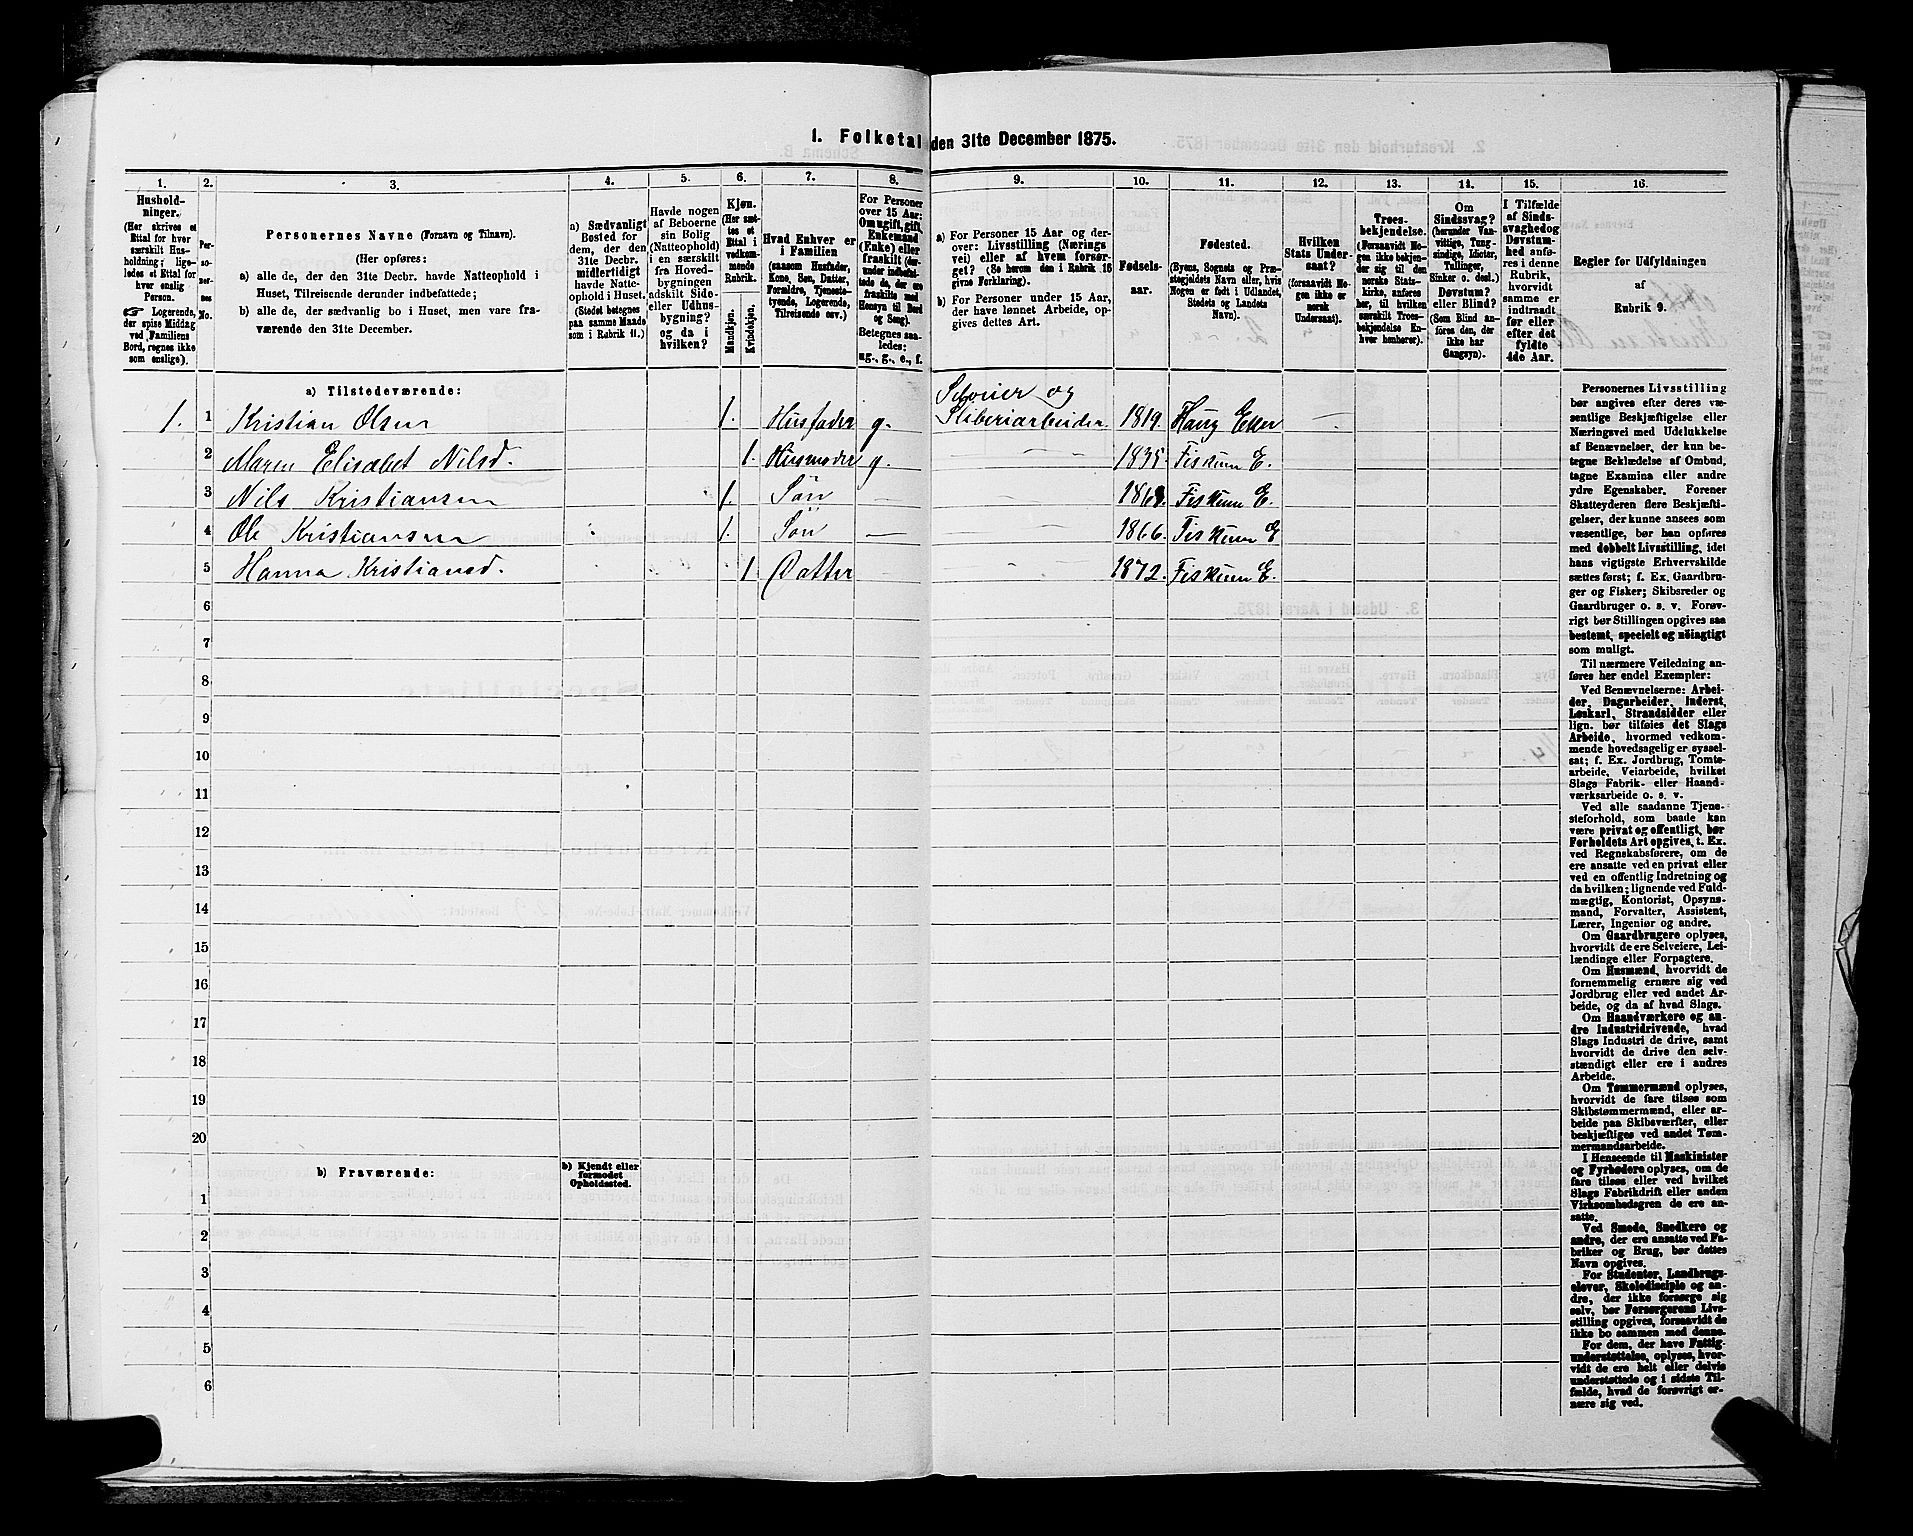 1. Folketal den 31te December 1875.
1. 2. 3. 4. 5. 6. 7. 8. 9. 10. 11. 12. 13. 14. 15. 16.
Hushold-
ninger.
(Her skrives et
Ettal for hver
særskilt Hus-
holdning; lige-
ledes et Ettal for
hver enslig
Person.
☛ Logerende,
der spise Middag
ved Familiens
Bord, regnes ikke
som enslige).
Per-
so-
ner-
nes
No.
Personernes Navne (Fornavn og Tilnavn).
(Her opføres:
a) alle de, der den 31te Decbr. havde Natteophold i
Huset, Tilreisende derunder indbefattede;
b) alle de, der sædvanlig bo i Huset, men vare fra-
værende den 31te December.
a) Sædvanligt
Bosted for
dem, der den
31te Decbr.
midlertidigt
havde Natte-
ophold i Huset.
(Stedet betegnes
paa samme Maade
som i Rubrik 11.)
Havde nogen
af Beboerne
sin Bolig
(Natteophold)
i en særskilt
fra Hoved-
bygningen
adskilt Side-
eller Udhus-
bygning?
og da i
hvilken?
Kjøn.
(Her sæt-
tes et
Ettal i
vedkom-
mende
Rubrik.
Mandkjøn.
Kvindekjøn.
Hvad Enhver er
i Familien
(saasom Husfader,
Kone, Søn, Datter,
Forældre, Tjeneste-
tyende, Logerende,
Tilreisende osv.)
For Personer
over 15 Aar:
Om ugift, gift,
Enkemand
(Enke) eller
fraskilt (der-
under indbefat-
tede de, der ere
fraskilte med
Hensyn til Bord
og Seng).
Betegnes saa-
ledes:
ug., g., e., f.
a) For Personer 15 Aar og der-
over: Livsstilling (Nærings
vei) eller af hvem forsør-
get? (Se herom den i Rubrik 16
givne Forklaring).
b) For Personer under 15 Aar,
der have lønnet Arbeide, op-
gives dettes Art.
Fødsels-
aar.
Fødested.
(Byens, Sognets og Præ-
stegjeldets Navn eller, hvis
Nogen er født i Udlandet,
Stedets og Landets
Navn).
Hvilken
Stats Under-
saat?
(forsaavidt No-
gen ikke er
norsk
Undersaat).
Troes-
bekjendelse.
(Forsaavidt No-
gen ikke bekjen-
der sig til den
norske Stats-
kirke, anføres
her, til hvilken
særskilt Troes-
bekjendelse En-
hver henhører).
Om
Sindssvag?
(herunder Van-
vittige, Tung-
sindige, Idioter,
Tullinger,
Sinker o. desl.)
Døvstum?
eller Blind?
(Som Blind an-
føres den, der
ikke har
Gangsyn).
I Tilfælde
af Sinds-
svaghed og
Døvstum-
hed anfø-
res i denne
Rubrik,
hvorvidt
samme er
indtraadt
før eller
efter det
fyldte
4de Aar.
Regler for Udfyldningen
af
Rubrik 9.
a) Tilstedeværende:
Selveier og
1. 1 Kristian Olsen 1. Husfader g. Sliberiarbeider. 1819. Haug Eker —
2 Maren Elisabet Nilsd. 1. Husmoder g. — — 1835. Fiskum E.
3 Nils Kristiansen 1. Søn — — Fiskum E.
4 Ole Kristiansen 1. Søn — — 1866. Fiskum E
5 Hanna Kristiansd. 1 Datter 1872. Fiskum E.
6
7
8
9
10
11
12
13
14
15
16
17
18
19
20
b) Fraværende:
b) Kjendt eller
formodet
Opholdssted.
1
2
3
4
5
6
Personernes Livsstilling
bør angives efter deres væ-
sentlige Beskjæftigelse eller
Næringsvei med Udelukkelse
af Benævnelser, der kun be-
tegne Beklædelse af Ombud,
tagne Examina eller andre
ydre Egenskaber. Forener
Skatteyderen flere Beskjæfti-
gelser, der kunne ansees som
væsentlige, bør han opføres
med dobbelt Livsstilling, idet
hans vigtigste Erhvervskilde
sættes først; f. Ex. Gaardbru-
ger og Fisker; Skibsreder og
Gaardbruger o. s. v. Forøv-
rigt bør Stillingen opgives saa
bestemt, specielt og nöiagtigt
som muligt.
Til nærmere Veiledning an-
føres her endel Exempler:
Ved Benævnelserne: Arbei-
der, Dagarbeider, Inderst,
Løskarl, Strandsidder eller
lign. bør tilføies det Slags
Arbeide, hvormed vedkom-
mende hovedsagelig er syssel-
sat; f. Ex. Jordbrug, Tomte-
arbeide, Veiarbeide, hvilket
Slags Fabrik- eller Haand-
værksarbeide o. s. v.
Ved alle saadanne Tjene-
steforhold, som baade kan
være privat og offentligt, bør
Forholdets Art opgives, t. Ex.
ved Regnskabsførere, om de
ere ansatte ved en privat eller
ved en offentlig Indretning og
da hvilken; lignende ved Fuld-
mægtig, Kontorist, Opsyns-
mand, Forvalter, Assistent,
Lærer, Ingeniør og andre.
Om Gaardbrugere oplyses,
hvorvidt de ere Selveiere, Lei-
lændinge eller Forpagtere.
Om Husmænd, hvorvidt de
fornemmelig ernære sig ved
Jordbrug eller ved andet Ar-
beide, og da af hvad Slags.
Om Haandværkere og an-
dre Industridrivende, hvad
Slags Industri de drive, samt
hvorvidt de drive den selv-
stændigt eller ere i andres
Arbeide.
Om Tømmermænd oplyses,
hvorvidt de fare tilsøs som
Skibstømmermænd, eller ar-
beide paa Skibsværfter, eller
beskjæftiges ved andet Tøm-
mermandsarbeide.
I Henseende til Maskinister
og Fyrbødere oplyses, om de
fare tilsøs eller ved hvilket
Slags Fabrikdrift eller anden
Virksomhedsgren de ere an-
satte.
Ved Smede, Snedkere og
andre, der ere ansatte ved Fa-
briker og Brug, bør dettes
Navn opgives.
For Studenter, Landbrugs-
elever, Skoledisciple og an-
dre, der ikke forsørge sig
selv, bør Forsørgerens Livs-
stilling opgives, forsaavidt de
ikke bo sammen med denne.
For dem, der have Fattig-
understøttelse, oplyses, hvor-
vidt de ere helt eller delvis
understøttede og i sidste Til-
fælde, hvad de forøvrigt er-
nære sig ved.